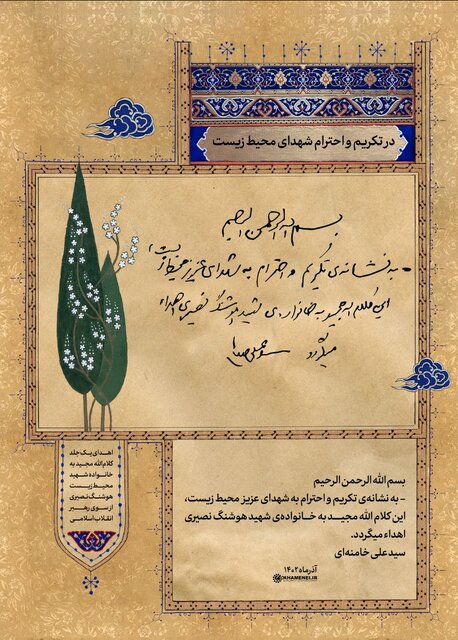 در تکریم و احترام شهدای محیط زیست
بسم الله الرحمن الرحیم
- به نشانه‌ی تکریم و احترام به شهدای عزیز محیط زیست،
این کلام الله مجید به خانواده‌ی شهید هوشنگ نصیری اهداء
میگردد سیدعلی خامنه‌ای
اهدای یک جلد
کلام‌الله مجید به
خانواده شهید
محیط زیست
هوشنگ نصیری
از سوی رهبر
انقلاب اسلامی
بسم الله الرحمن الرحیم
- به نشانه‌ی تکریم و احترام به شهدای عزیز محیط زیست،
این کلام الله مجید به خانواده‌ی شهید هوشنگ نصیری
اهداء میگردد.
سیدعلی خامنه‌ای
آذرماه ۱۴۰۲
KHAMENEI.IR